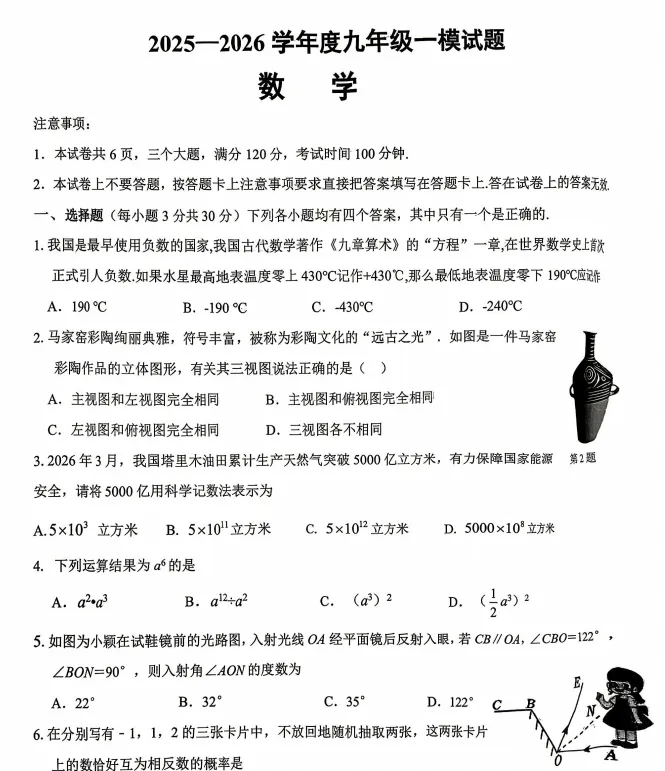 2025—2026 学年度九年级一模试题
数 学
注意事项：
1．本试卷共 6 页，三个大题，满分 120 分，考试时间 100 分钟.
2．本试卷上不要答题，按答题卡上注意事项要求直接把答案填写在答题卡上.答在试卷上的答案无效.
一、选择题（每小题 3 分共 30 分）下列各小题均有四个答案，其中只有一个是正确的.
1. 我国是最早使用负数的国家,我国古代数学著作《九章算术》的“方程”一章,在世界数学史上首次
正式引人负数.如果水星最高地表温度零上 430℃记作+430℃,那么最低地表温度零下 190℃应记作
A．190 ℃ B．-190 ℃ C．-430℃ D．-240℃
2. 马家窑彩陶绚丽典雅，符号丰富，被称为彩陶文化的“远古之光”．如图是一件马家窑
彩陶作品的立体图形，有关其三视图说法正确的是（ ）
A．主视图和左视图完全相同 B．主视图和俯视图完全相同
C．左视图和俯视图完全相同 D．三视图各不相同
第 2 题
3. 2026 年 3 月，我国塔里木油田累计生产天然气突破 5000 亿立方米，有力保障国家能源
安全，请将 5000 亿用科学记数法表示为
A. 5×10³ 立方米 B. 5×10¹¹ 立方米 C. 5×10¹² 立方米 D. 5000×10⁸ 立方米
4. 下列运算结果为 a⁶ 的是
A．a²•a³ B．a¹²÷a² C．（a³）² D．（1/2 a³）²
5. 如图为小颖在试鞋镜前的光路图，入射光线 OA 经平面镜后反射入眼，若 CB∥OA，∠CBO=122°，
∠BON=90°，则入射角∠AON 的度数为
A．22° B．32° C．35° D．122°
C B E N O A
6. 在分别写有﹣1，1，2 的三张卡片中，不放回地随机抽取两张，这两张卡片
上的数恰好互为相反数的概率是